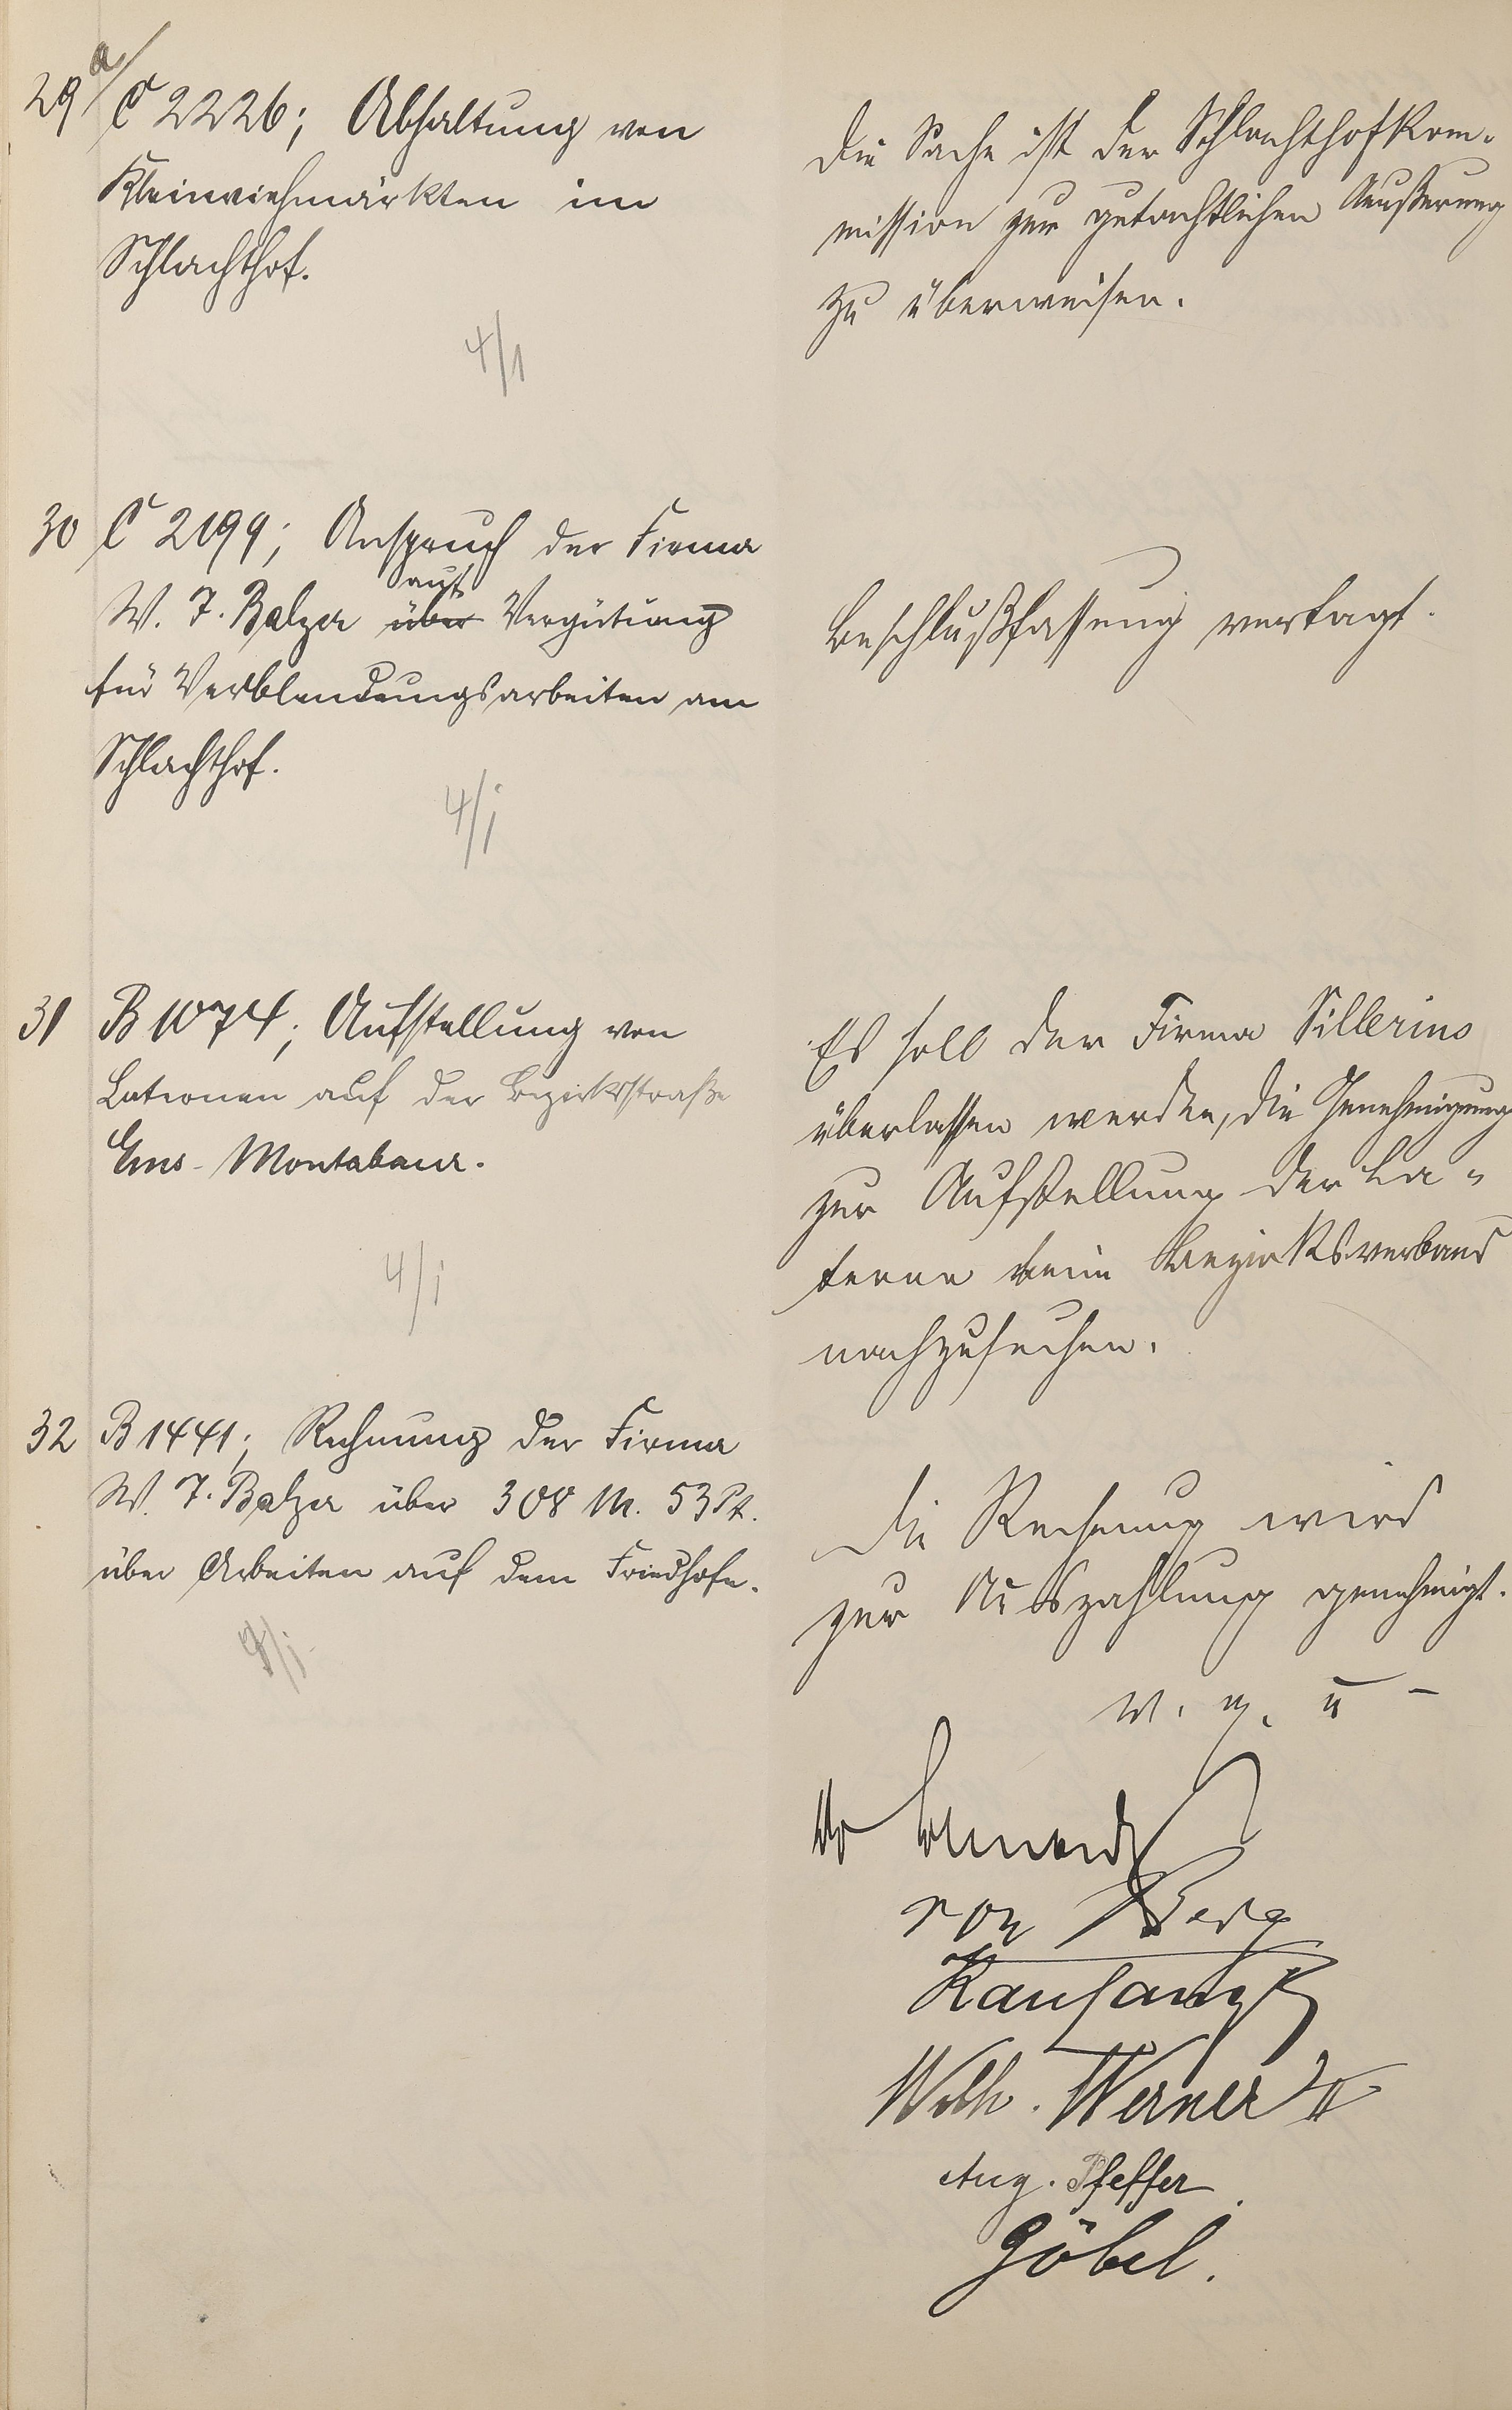 29 a/ C 2226; Abhaltung von
Kleinviehmärkten im
Schlachthof.
4/1
Die Sache ist der Schlachthofkom-
mission zur gutachtlichen Äußerung
zu überweisen.
30 C 2199; Anspruch der Firma
auf
W. J. Balzer über Vergütung
für Verblendungsarbeiten am
Schlachthof.
4/1
Beschlußfassung vertagt.
31 B 1074; Aufstellung von
Laternen auf der Bezirksstraße
Ems-Montabaur.
4/1
Es soll der Firma
überlassen werden, die Genehmigung
zur Aufstellung der La-
terne beim Bezirksverband
nachzusuchen.
32 B 1441; Rechnung der Firma
W. J. Balzer über 308 M. 53 Pf.
über Arbeiten auf dem Friedhofe.
Die Rechnung wird
zur Auszahlung genehmigt.
v. g. u.
von Berg
Wilh. Werner II
Aug. Pfeffer
Göbel.